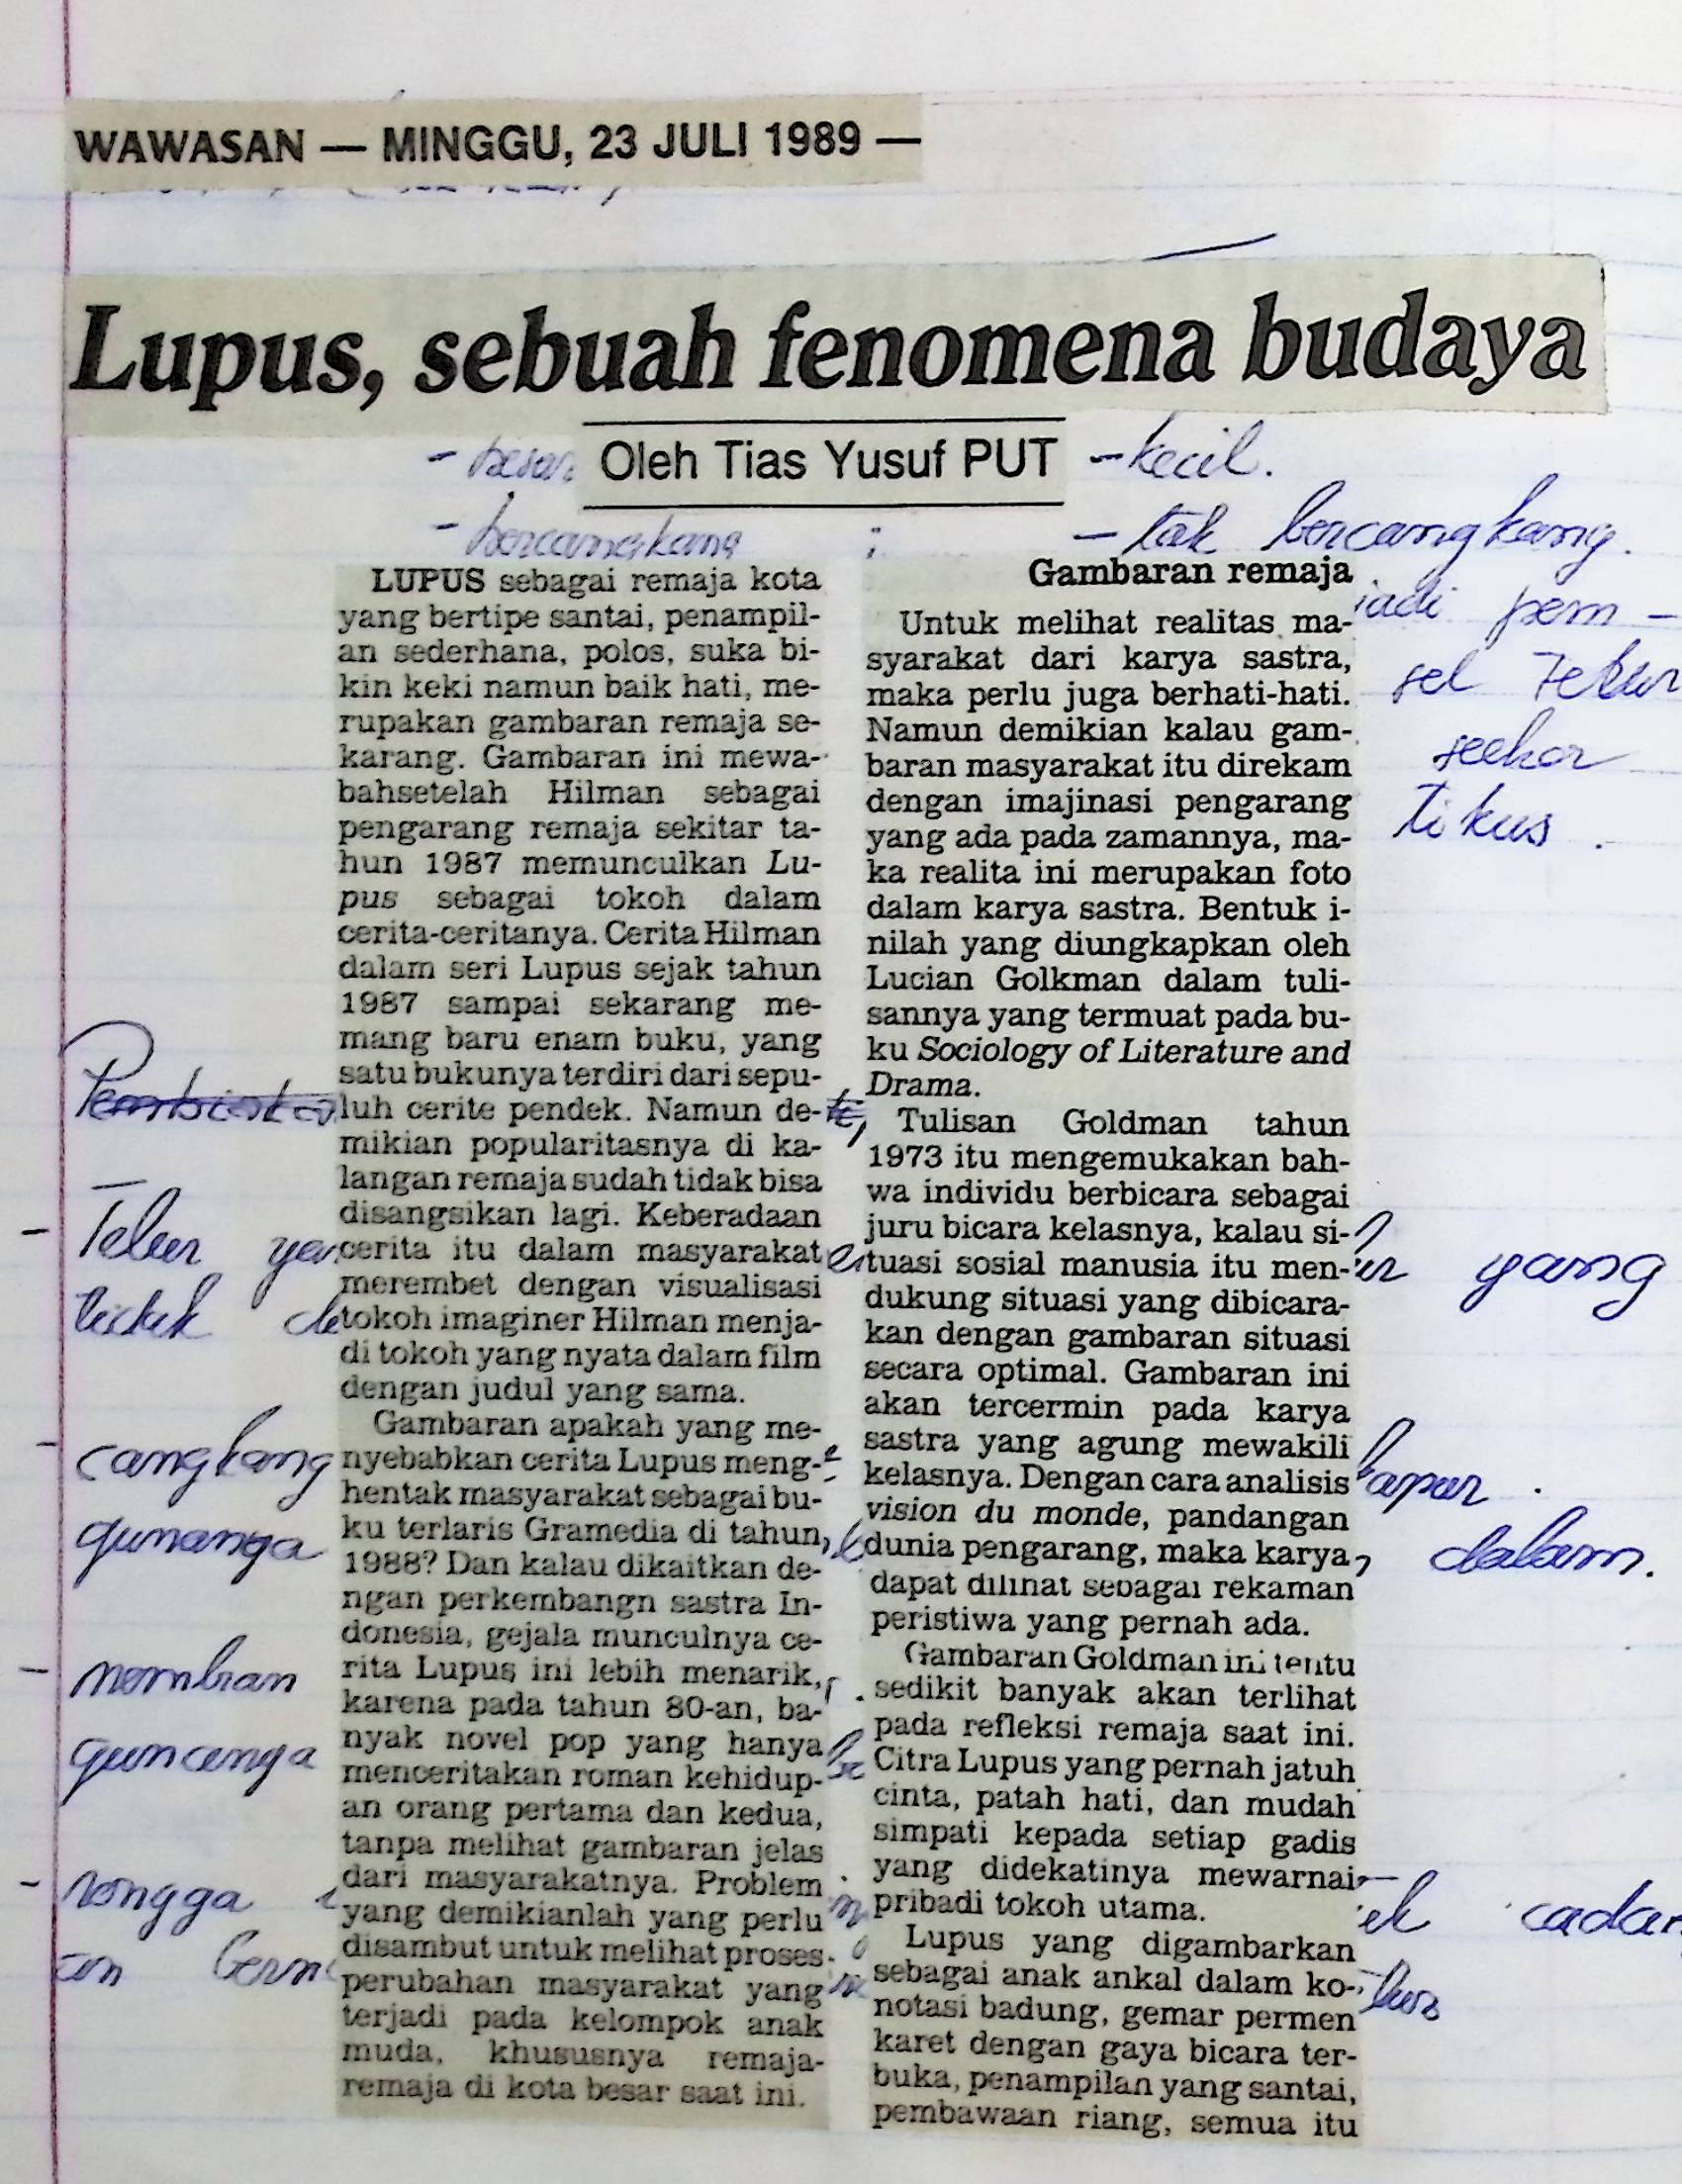 WAWASAN — MINGGU, 23 JULI 1989 —
Lupus, sebuah fenomena budaya
Oleh Tias Yusuf PUT
- kecil.
- bercangkang
- tak bercangkang.
LUPUS sebagai remaja kota
yang bertipe santai, penampil-
an sederhana, polos, suka bi-
kin keki namun baik hati, me-
rupakan gambaran remaja se-
karang. Gambaran ini mewa-
bahsetelah Hilman sebagai
pengarang remaja sekitar ta-
hun 1987 memunculkan Lu-
pus sebagai tokoh dalam
cerita-ceritanya. Cerita Hilman
dalam seri Lupus sejak tahun
1987 sampai sekarang me-
mang baru enam buku, yang
satu bukunya terdiri dari sepu-
luh cerite pendek. Namun de-
mikian popularitasnya di ka-
langan remaja sudah tidak bisa
disangsikan lagi. Keberadaan
cerita itu dalam masyarakat
merembet dengan visualisasi
tokoh imaginer Hilman menja-
di tokoh yang nyata dalam film
dengan judul yang sama.
Gambaran apakah yang me-
nyebabkan cerita Lupus meng-
hentak masyarakat sebagai bu-
ku terlaris Gramedia di tahun
1988? Dan kalau dikaitkan de-
ngan perkembangn sastra In-
donesia, gejala munculnya ce-
rita Lupus ini lebih menarik,
karena pada tahun 80-an, ba-
nyak novel pop yang hanya
menceritakan roman kehidup-
an orang pertama dan kedua,
tanpa melihat gambaran jelas
dari masyarakatnya. Problem
yang demikianlah yang perlu
disambut untuk melihat proses
perubahan masyarakat yang
terjadi pada kelompok anak
muda, khususnya remaja-
remaja di kota besar saat ini.
Gambaran remaja
Untuk melihat realitas ma-
syarakat dari karya sastra,
maka perlu juga berhati-hati.
Namun demikian kalau gam-
baran masyarakat itu direkam
dengan imajinasi pengarang
yang ada pada zamannya, ma-
ka realita ini merupakan foto
dalam karya sastra. Bentuk i-
nilah yang diungkapkan oleh
Lucian Golkman dalam tuli-
sannya yang termuat pada bu-
ku Sociology of Literature and
Drama.
Tulisan Goldman tahun
1973 itu mengemukakan bah-
wa individu berbicara sebagai
juru bicara kelasnya, kalau si-
tuasi sosial manusia itu men-
dukung situasi yang dibicara-
kan dengan gambaran situasi
secara optimal. Gambaran ini
akan tercermin pada karya
sastra yang agung mewakili
kelasnya. Dengan cara analisis
vision du monde, pandangan
dunia pengarang, maka karya
dapat dilihat sebagai rekaman
peristiwa yang pernah ada.
Gambaran Goldman ini tentu
sedikit banyak akan terlihat
pada refleksi remaja saat ini.
Citra Lupus yang pernah jatuh
cinta, patah hati, dan mudah
simpati kepada setiap gadis
yang didekatinya mewarnai
pribadi tokoh utama.
Lupus yang digambarkan
sebagai anak ankal dalam ko-
notasi badung, gemar permen
karet dengan gaya bicara ter-
buka, penampilan yang santai,
pembawaan riang, semua itu
- Telur
- cangkang
gunanya
- membran
gunanya
- rongga
sel
seekor
tikus.
yang
dalam.